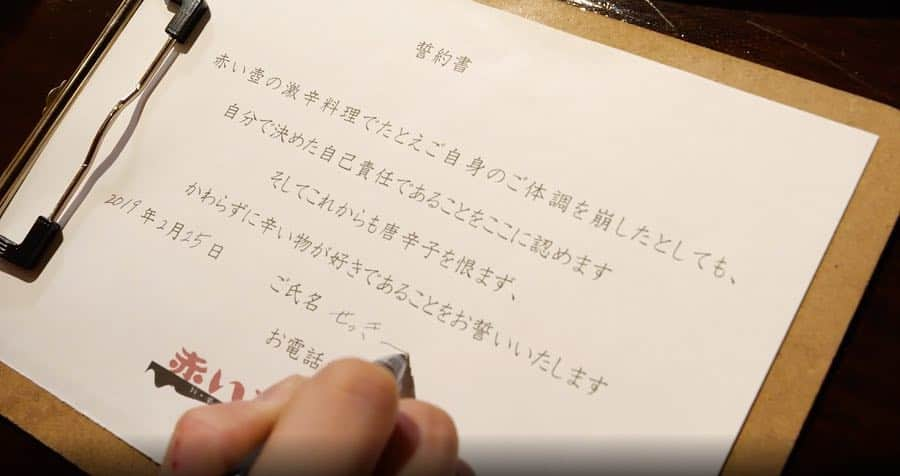 誓約書
赤い壺の激辛料理でたとえご自身のご体調を崩したとしても、
自分で決めた自己責任であることをここに認めます
そしてこれからも唐辛子を恨まず、
かわらずに辛い物が好きであることをお誓いいたします
2019年2月25日
ご氏名 ぜっきー
お電話
赤い